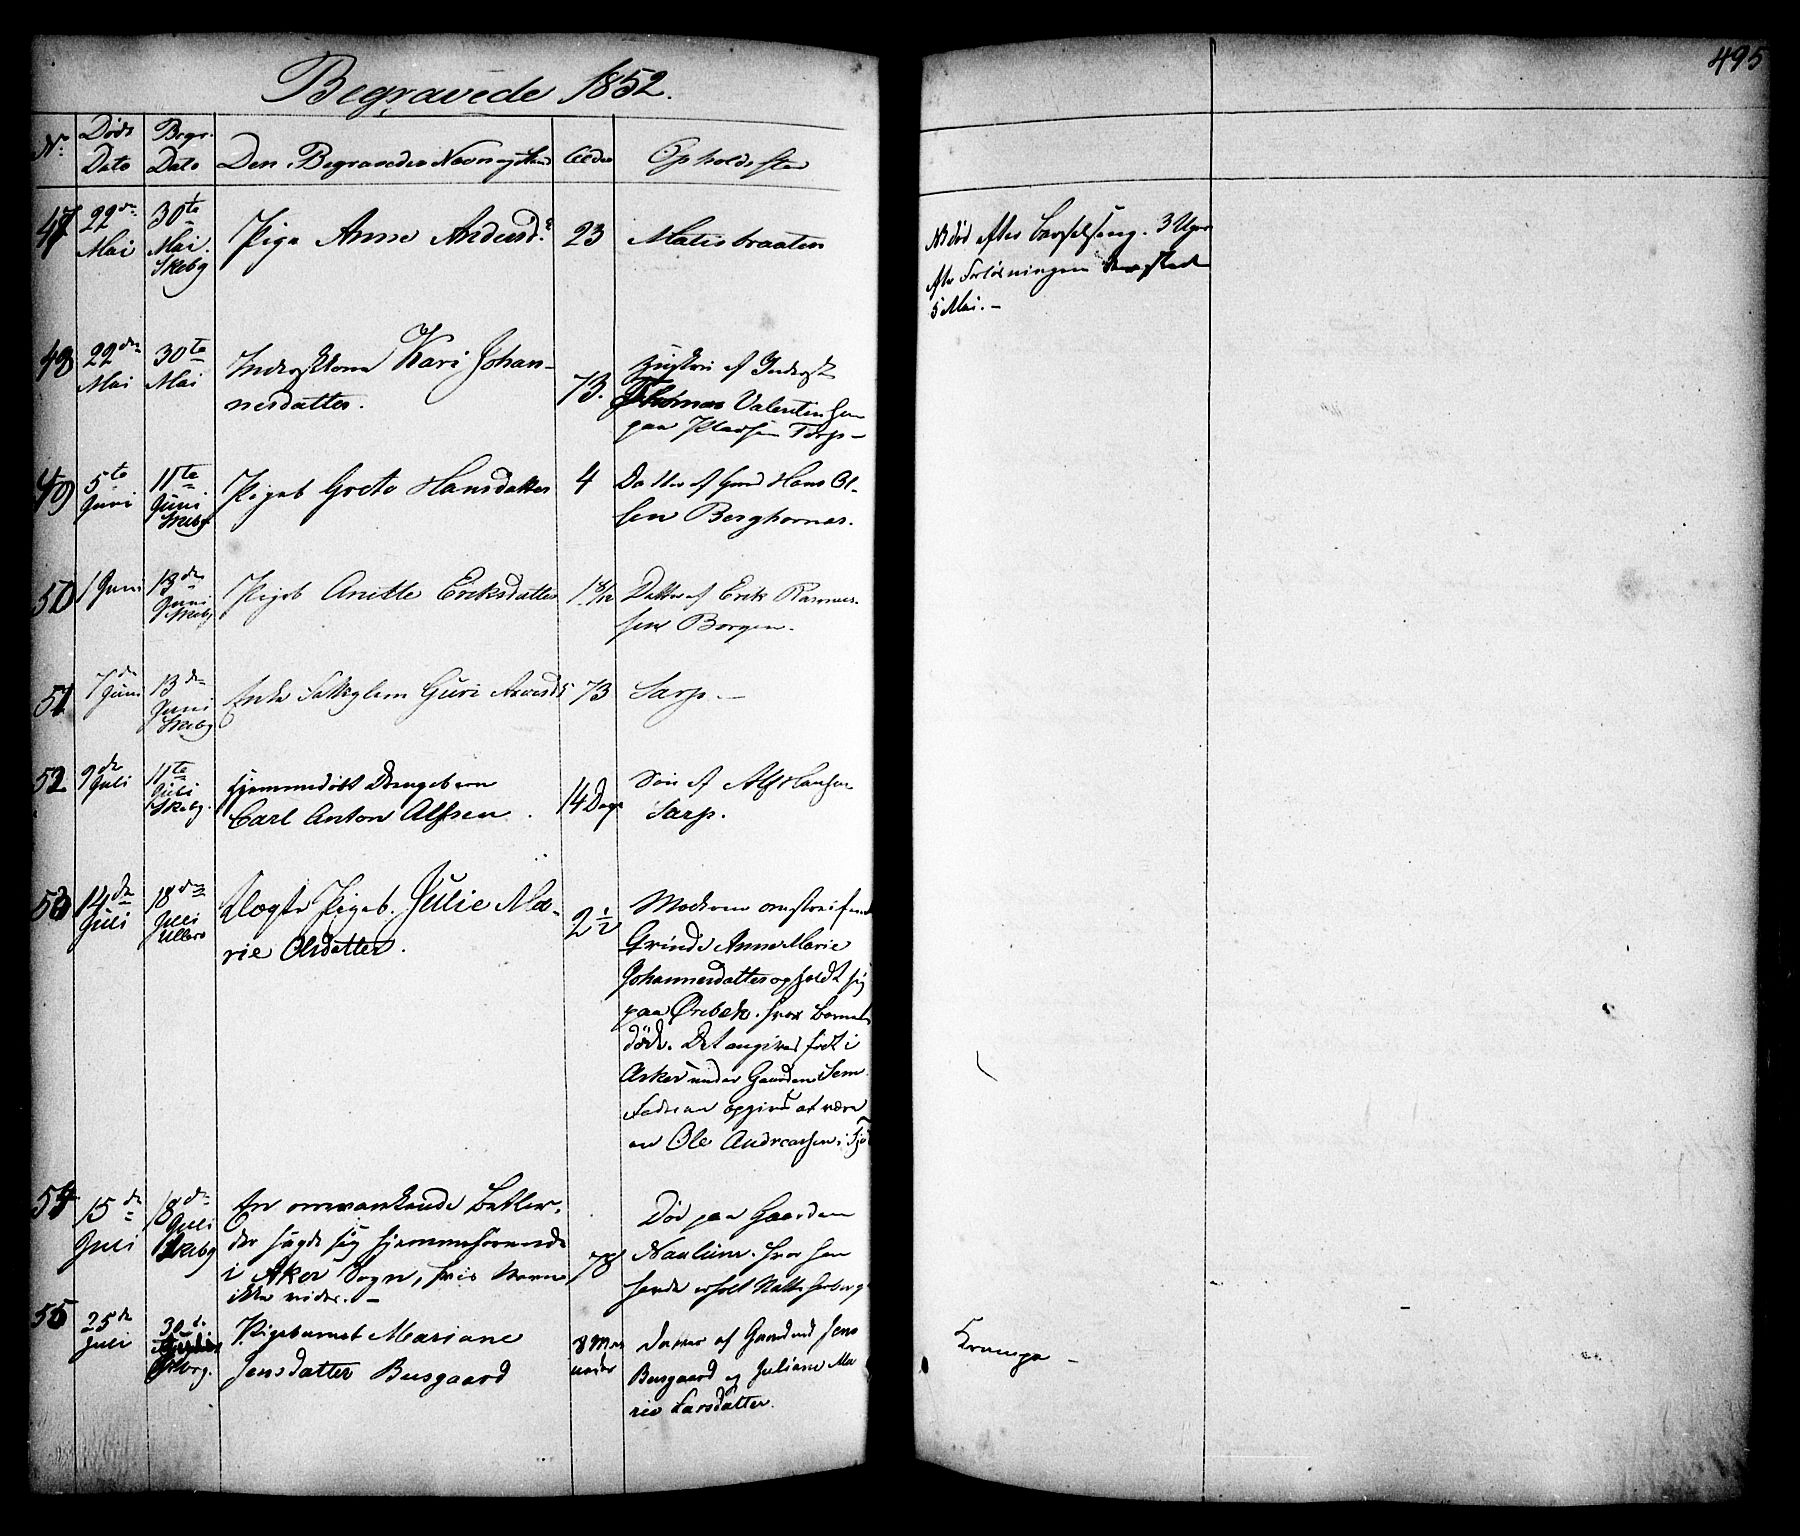 495
Begravede 1852.
No. Døds Dato Begr. Dato Den Begravedes Navn og Stand Alder Opholdssted
47 22de Mai 30te Mai Skebg Pige Anne Andersd. 23
5 Mai. –
48 22de Mai 30te Mai Kari Johan-
nesdatter. 73. Hustru af Inderst
Thomas Valentinsen
paa Torp –
49 5te Juni 11te Juni Skebg Pigeb Grete Hansdatter 4 Datter af Hans Ol-
sen Berghornes.
50 1 Juni 13de Juni Skebg Pigeb Anette Eriksdatter 1 8/12 Datter af Erik Rasmus-
sen Borgen.
51 7de Juni 13de Juni Skebg Enke Guri 73 Sarp. –
52 9de Juli 11te Juli Skebg. Hjemmedøbt Drengebarn
Carl Anton Alfsen. 14 Dage Søn af Alf Hansen
Sarp.
53 14de Juli 18de Juli Ullero Uægte Pigeb. Julie Ma-
rie Olsdatter. 2 1/2 Moderen omstreifende
Qvinde Anne Marie
Johannesdatter opholdt sig
paa Ørebek. hvor Barnet
døde. Det angives født i
Asker under Gaarden Sem.
Faderen opgives at være
en Ole Andreassen i
54 15de Juli 18de Juli Skebg En omvankende Betler,
der sagde sig hjemmehørende
i Aker Sogn, hvis Navn
ikke vides. – 78 Død paa Gaarden
Navlum. hvor han
havde erholdt Natteherberg
55 25de Juli 30te Pigebarnet Mariane
Jensdatter Busgaard 8 Maaneder Datter af Gaardmd Jens
Busgaard og Juliane Ma
rie Larsdatter.
Krampe –